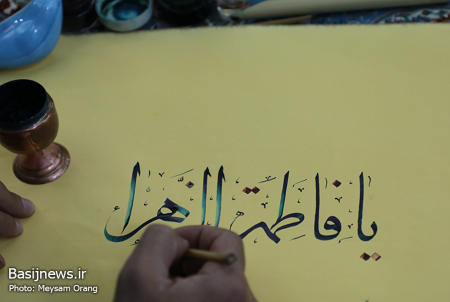 یا فاطمة الزهرا
Basijnews.ir
Photo: Meysam Orang